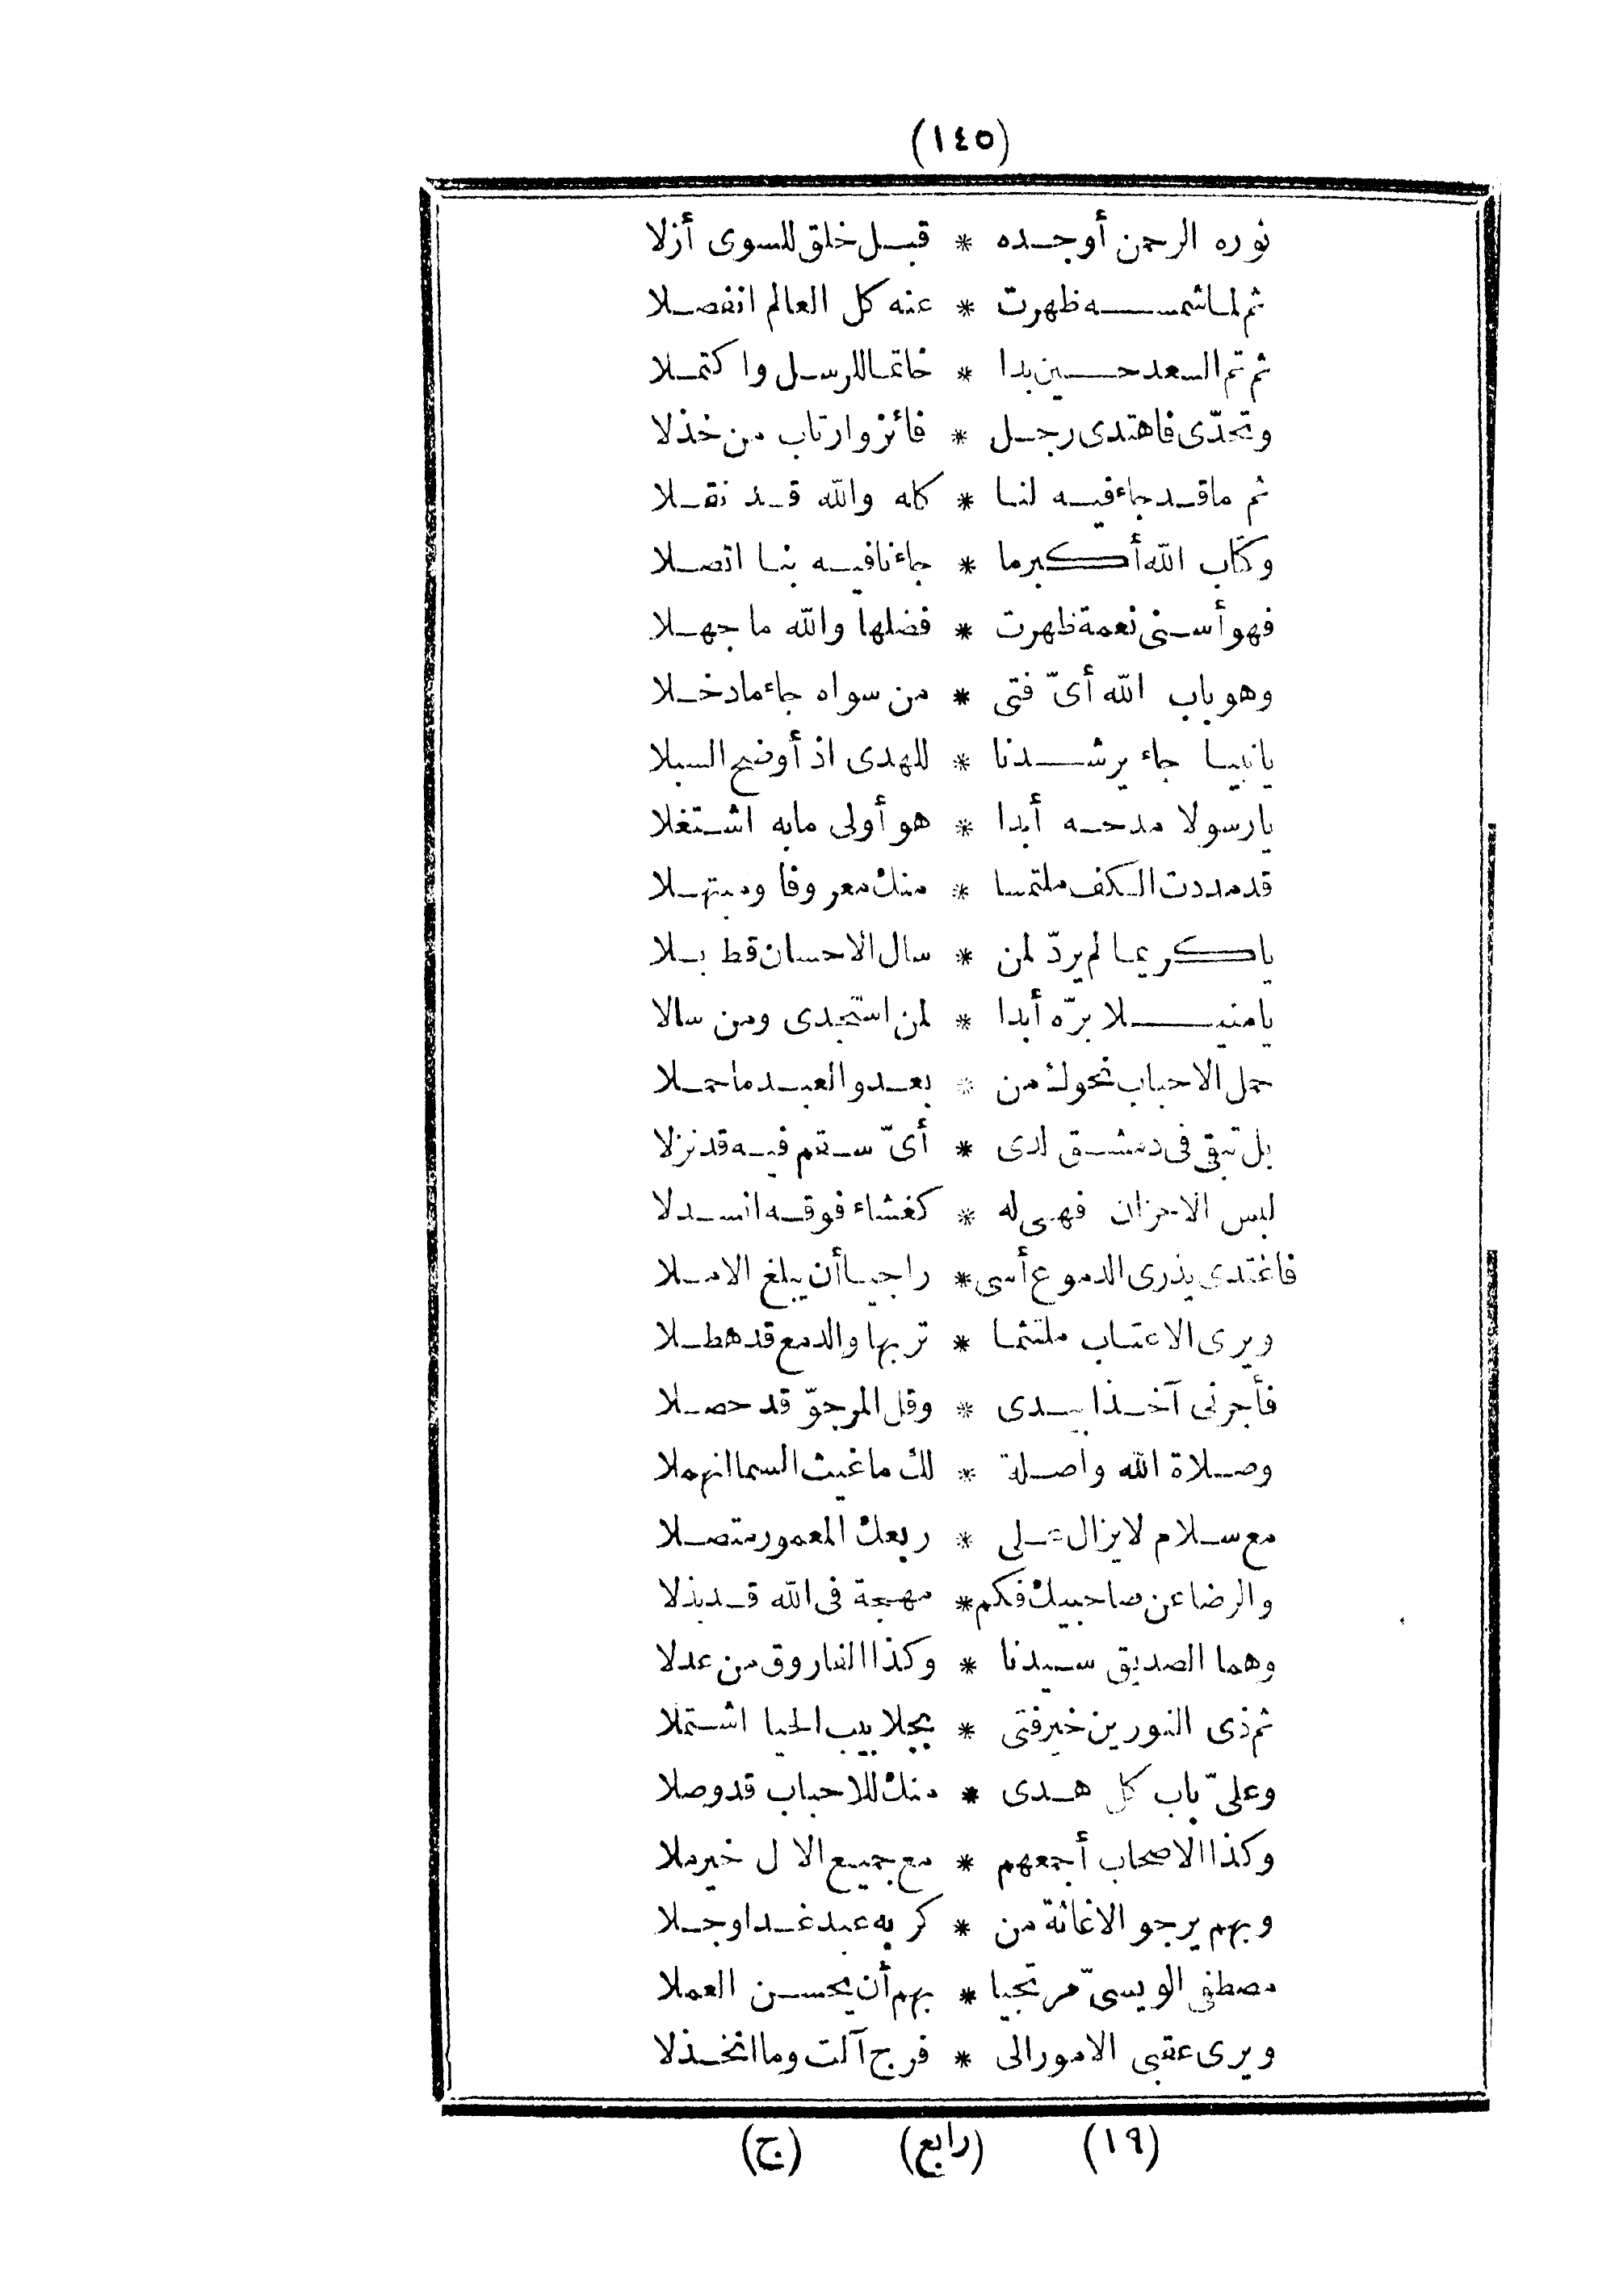 (١٤٥)
نوره الرحمن أوجده * قبل خلق للسوى أزلا
ثم لما شمسه ظهرت * عنه كل العالم انفصلا
ثم تم السعد حين بدا * خاتما للرسل واكتملا
وتحدّى فاهتدى رجل * فائز وارتاب من خذلا
ثم ما قد جاء فيه لنا * كله والله قد نقلا
وكتاب الله أكبر ما * جاءنا فيه بنا اتصلا
فهو أسنى نعمة ظهرت * فضلها والله ما جهلا
وهو باب الله أىّ فتى * من سواه جاء ما دخلا
يا نبيا جاء يرشدنا * للهدى اذ أوضح السبلا
يا رسولا مدحه أبدا * هو أولى ما به اشتغلا
قد مددت الكف ملتمسا * منك معروفا ومبتهلا
يا كريما لم يردّ لمن * سال الاحسان قط بلا
يا منيلا برّه أبدا * لمن استجدى ومن سالا
حمل الاحباب نحوك من * بعد والعبد ما حملا
بل تبقى فى دمشق لدى * أىّ سقم فيه قد نزلا
لبس الاحزان فهى له * كغشاء فوقه انسدلا
فاغتدى يذرى الدموع أسى * راجيا أن يبلغ الاملا
ويرى الاعتاب ملتثما * تربها والدمع قد هطلا
فأجرنى آخذا بيدى * وقل المرجوّ قد حصلا
وصلاة الله واصلة * لك ما غيث السما انهملا
مع سلام لا يزال على * ربعك المعمور متصلا
والرضا عن صاحبيك فكم * مهجة فى الله قد بذلا
وهما الصديق سيدنا * وكذا الفاروق من عدلا
ثم ذى النورين خير فتى * بجلابيب الحيا اشتملا
وعلىّ باب كل هدى * منك للاحباب قد وصلا
وكذا الاصحاب أجمعهم * مع جميع الال خير ملا
وبهم يرجو الاغاثة من * كربه عبد غدا وجلا
مصطفى الويسىّ مرتجيا * بهم أن يحسن العملا
ويرى عقبى الامور الى * فرج آلت وما انخذلا
(١٩) (رابع) (ج)